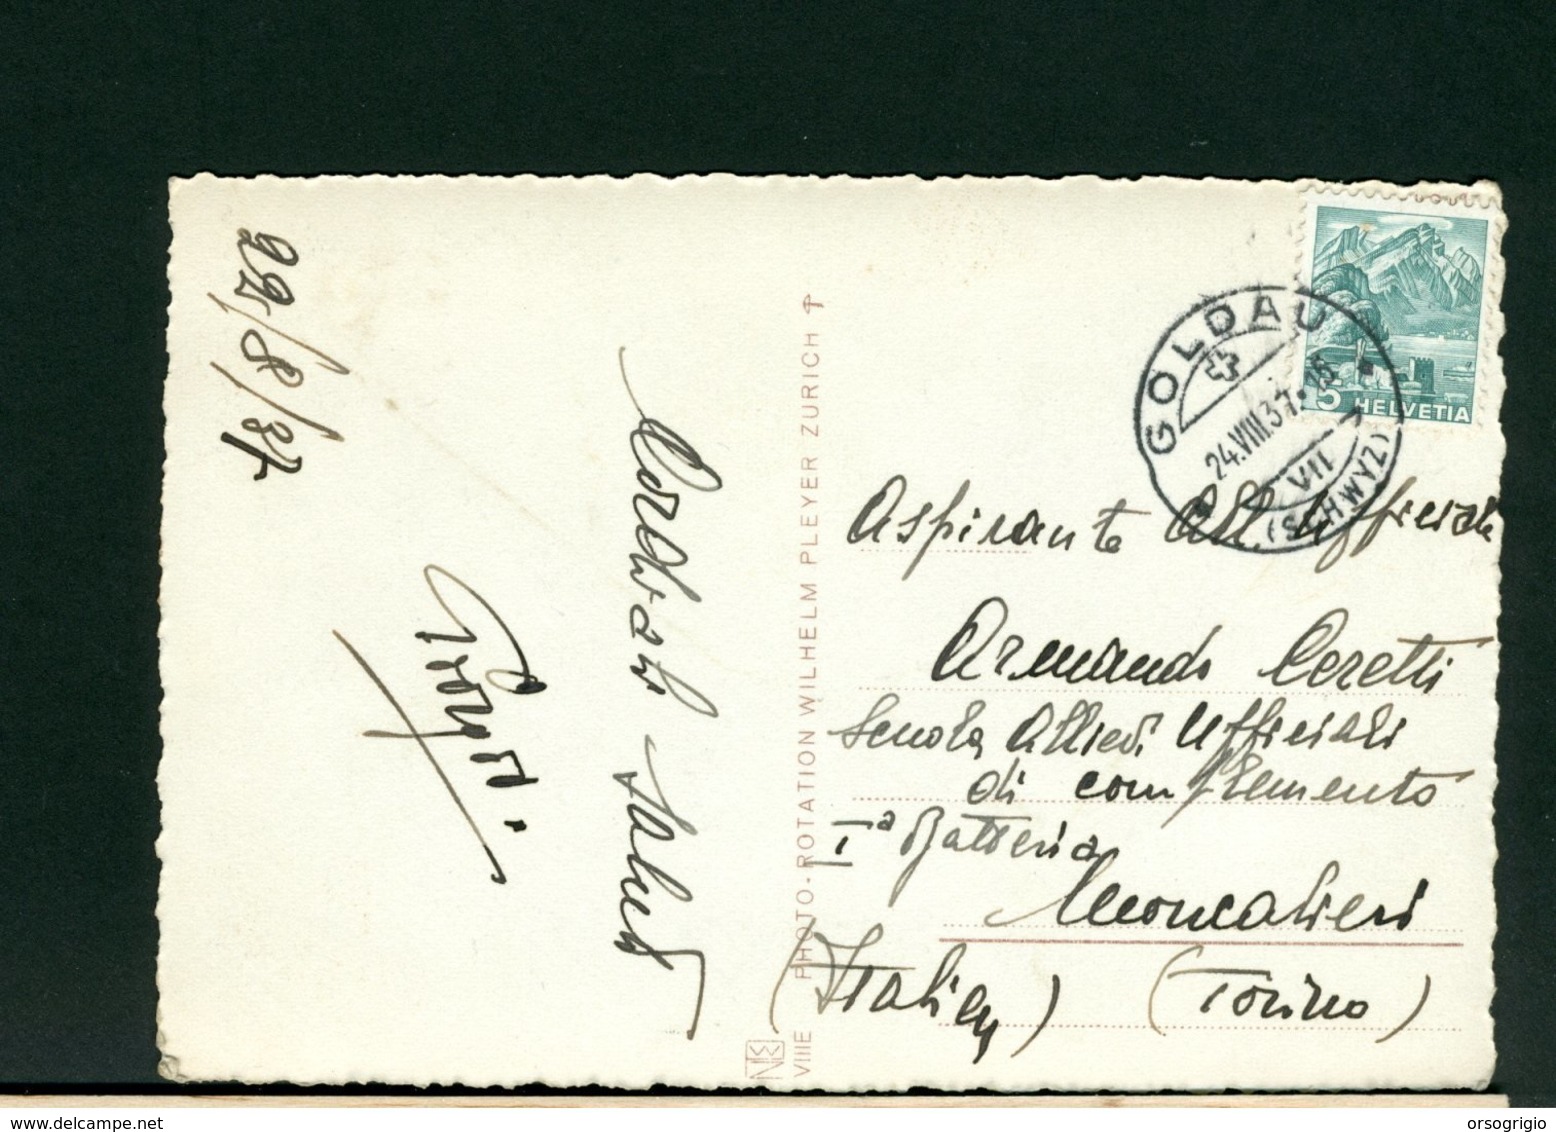 22/8/37
Cordiali saluti
PHOTO-ROTATION WILHELM PLEYER ZURICH
VIIIE
GOLDAU
24.VIII.37.15
VII
(SCHWYZ)
5 HELVETIA
Aspirante All. Ufficiale
Armando Ceretti
Scuola Allievi Ufficiali
di complemento
Iª Batteria
Moncalieri
(Italien) (Torino)
orsogrigio